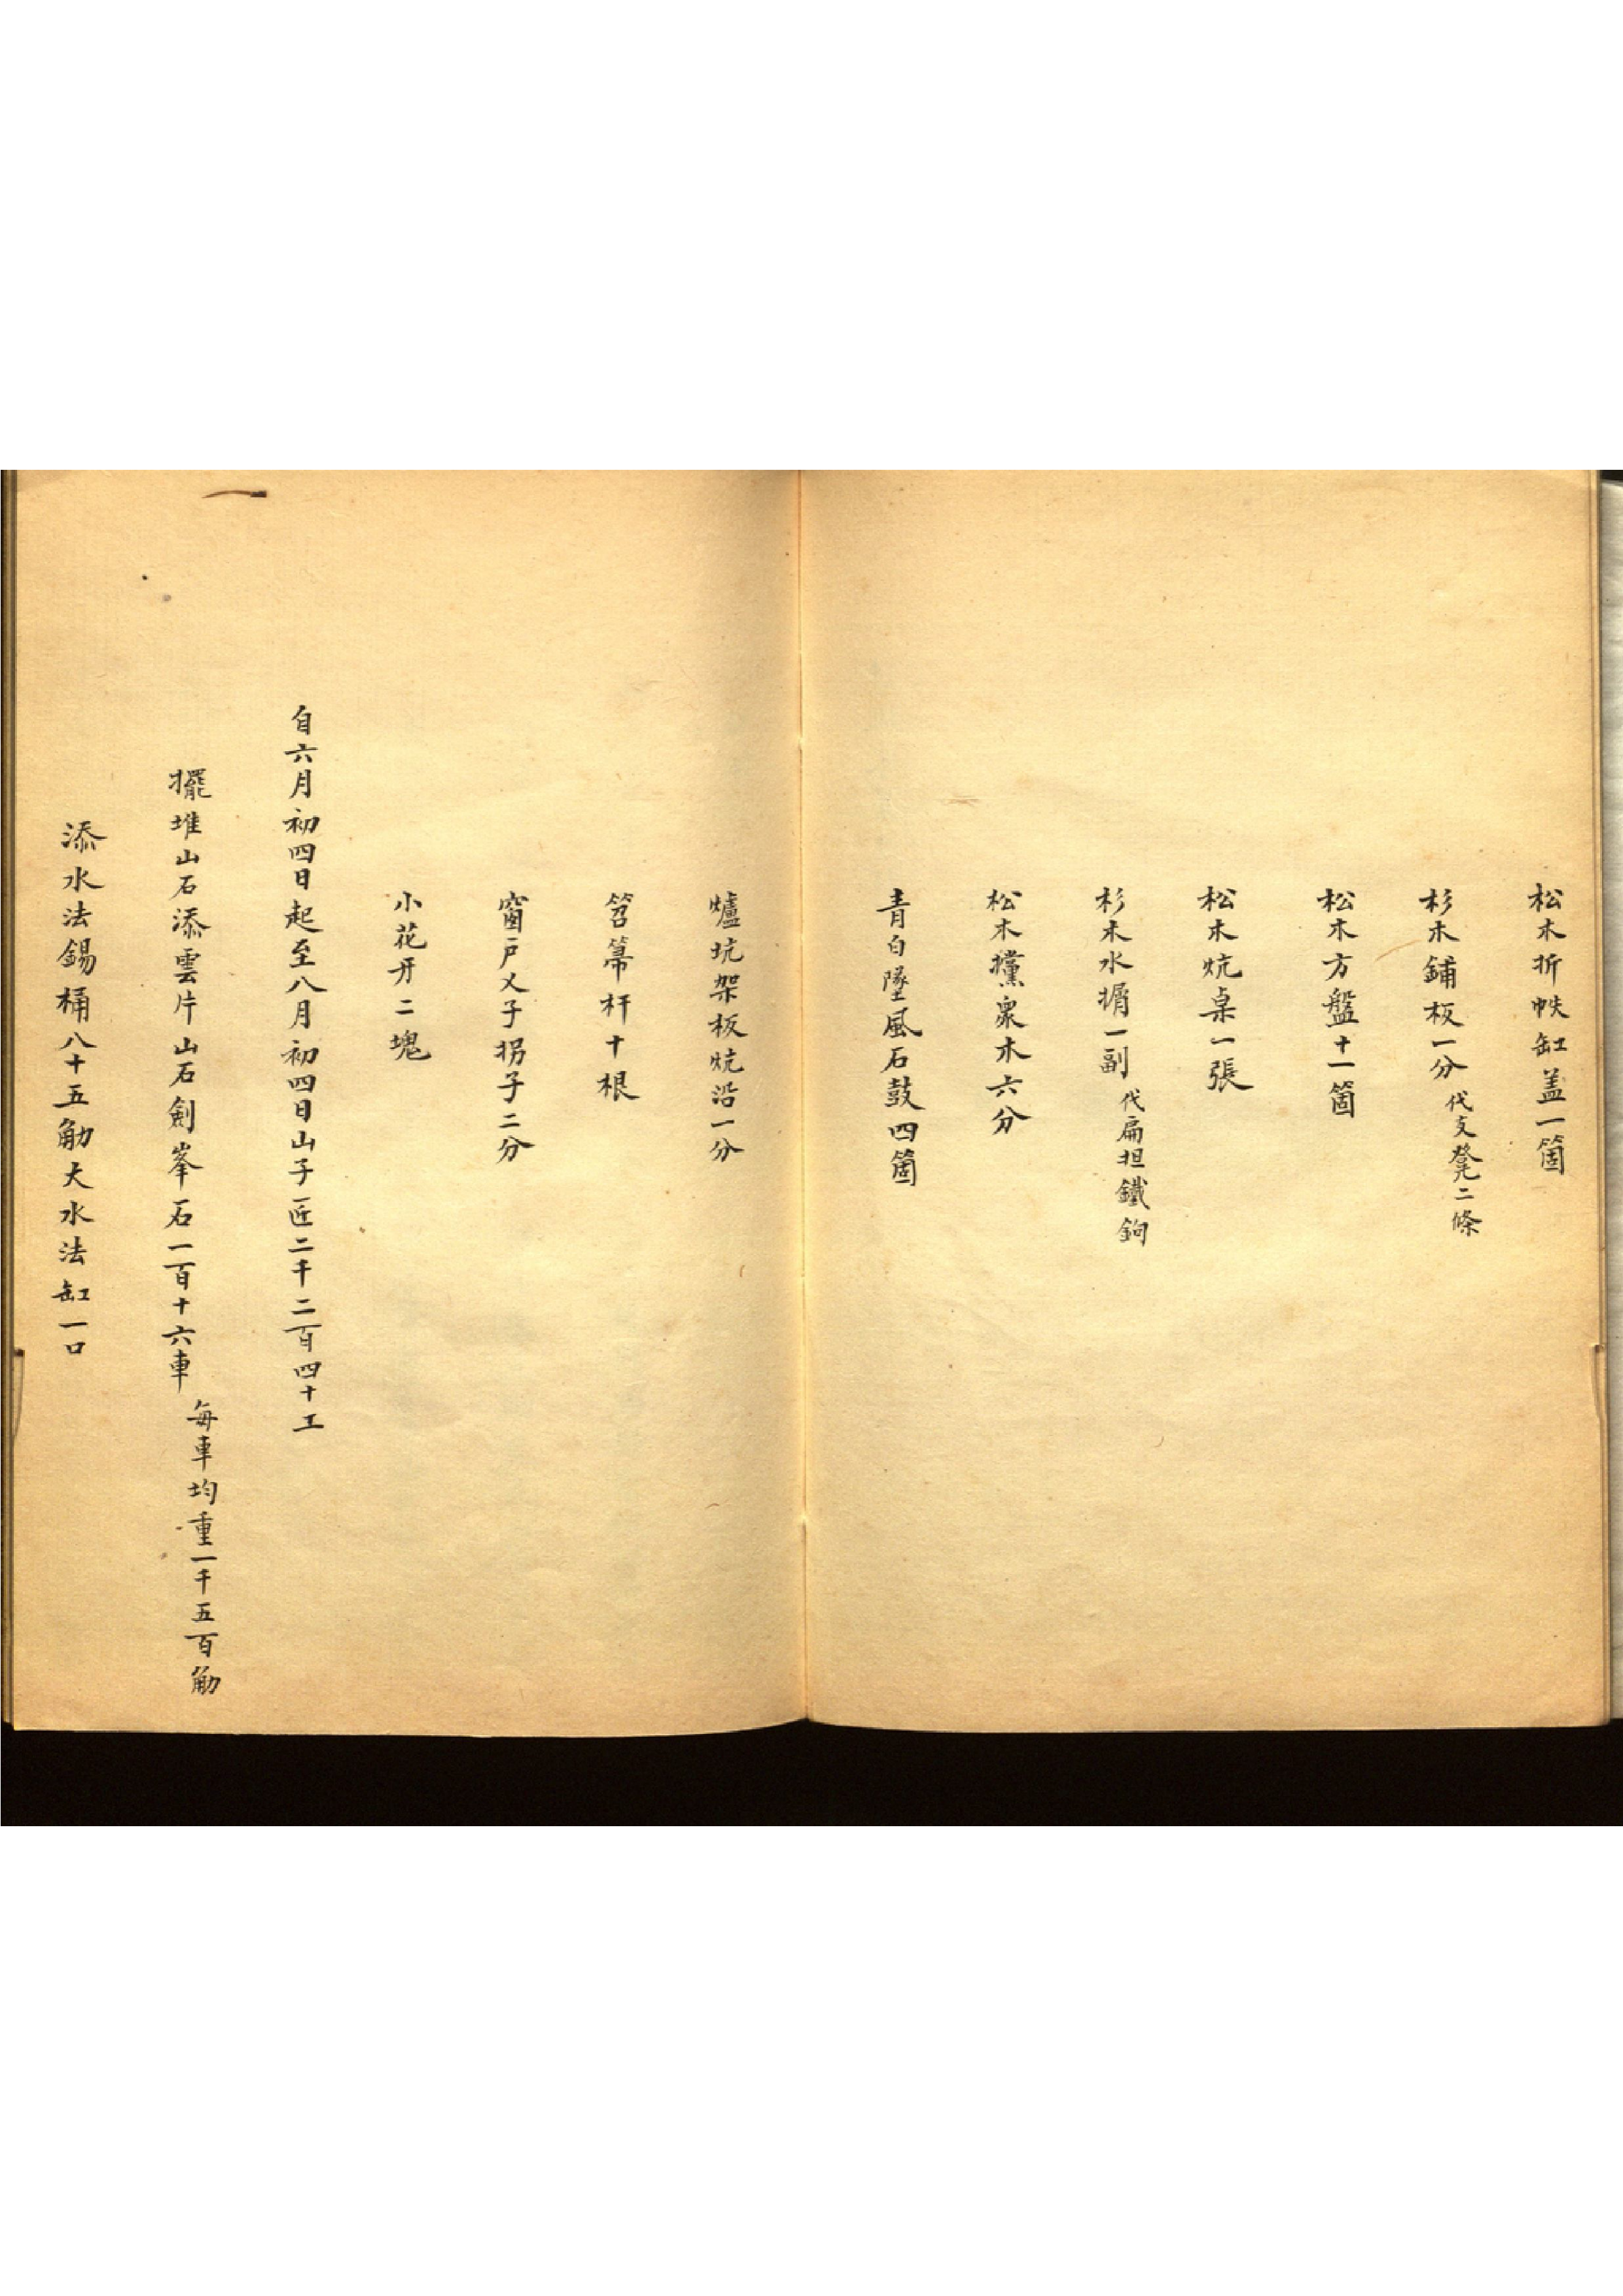 松木折帙缸盖一箇
杉木鋪板一分 代支凳二條
松木方盤十一箇
松木炕桌一張
杉木水㨰一副 代扁担鐵鉤
松木攩衆木六分
青白墜風石鼓四箇
爐坑架板炕沿一分
笤箒杆十根
窗户乂子拐子二分
小花牙二塊
自六月初四日起至八月初四日山子匠二千二百四十工
擺堆山石添雲片山石劍峯石一百十六車 每車均重一千五百觔
添水法錫桶八十五觔大水法缸一口